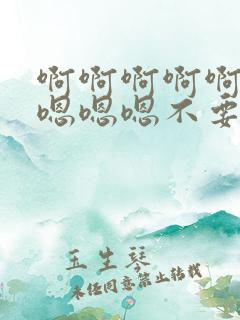 啊啊啊啊啊
嗯嗯嗯不要
玉生琴
未经同意禁止转载